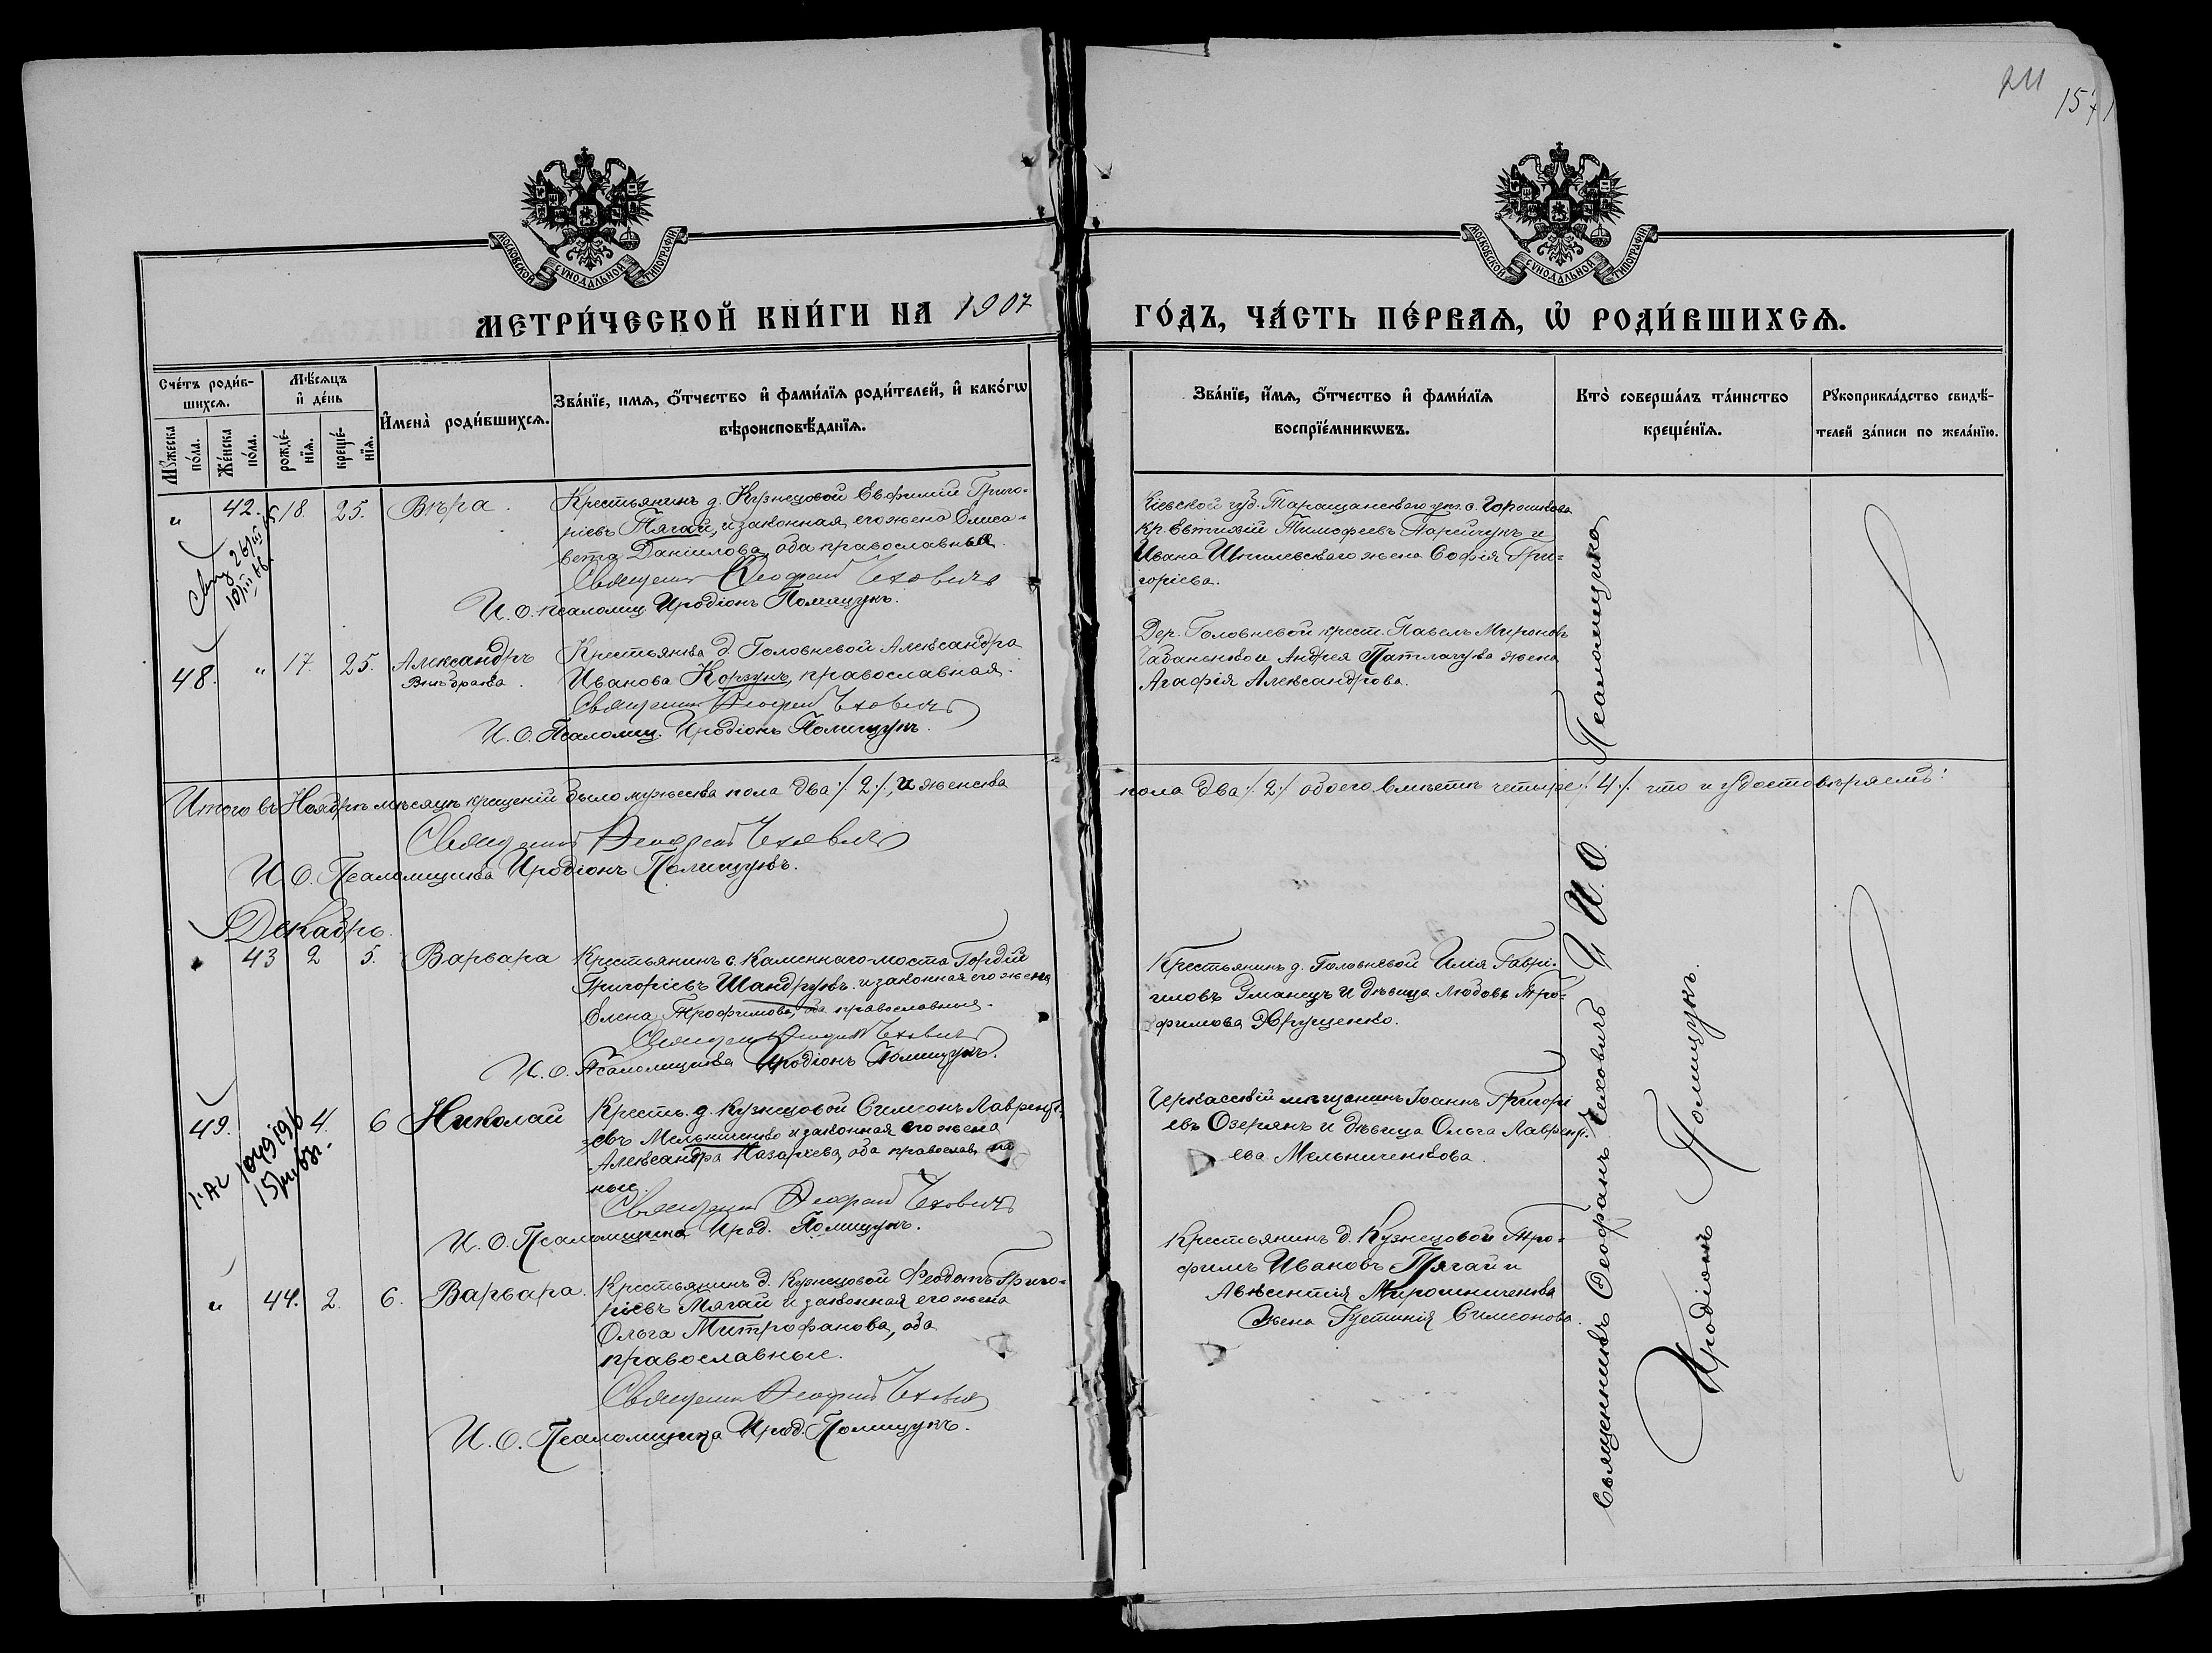 211
157
МОСКОВСКОЙ СѴНОДАЛЬНОЙ ТИПОГРАФІИ
МОСКОВСКОЙ СѴНОДАЛЬНОЙ ТИПОГРАФІИ
МЕТРИ́ЧЕСКОЙ КНИ́ГИ НА 1907
ГО́ДЪ, ЧА́СТЬ ПЕ́РВАѦ, Ѡ҆ РОДИ́ВШИХСѦ.
Сче́тъ роди́в-
шихсѧ.
Мꙋ́жеска по́ла.
Же́нска по́ла.
Мѣ́сѧцъ
и҆ де́нь
рожде́-
нїѧ.
креще́-
нїѧ.
И҆мена̀ роди́вшихсѧ.
Зва́нїе, имѧ, ѻ҆́тчество и҆ фами́лїѧ роди́телей, и҆ како́гѡ
вѣроисповѣ́данїѧ.
Зва́нїе, и҆́мѧ, ѻ҆́тчество и҆ фами́лїѧ
воспрїе́мникѡвъ.
Кто̀ соверша́лъ та́инство
креще́нїѧ.
Рꙋкоприкла́дство свидѣ́-
телей за́писи по жела́нїю.
" 42. 18. 25. Вѣра.
Крестьянинъ д. Кузнецовой Евфимій Григо-
ріевъ Тягай, и законная его жена Елиса-
вета Даніилова, оба православные.
Священникъ Ѳеофанъ Чеховичъ
И. О. псаломщ. Иродіонъ Полищукъ.
Кіевской губ. Таращанскаго ут. с. Горошкова
кр. Евтихій Тимофеевъ Парейчукъ и
Ивана Шпилевскаго жена Софія Гри-
горіева.
48. " 17. 25. Александръ
Внѣбрачн.
Крестьянка д. Головневой Александра
Иванова Корзунъ, православная.
Священникъ Ѳеофанъ Чеховичъ
И. О. Псаломщ. Иродіонъ Полищукъ.
Дер. Головневой крест. Павелъ Мироновъ
Чабаненко и Андрея Патлачука жена
Агафія Александрова.
Итого въ Ноябрѣ мѣсяцѣ крещеній было мужеска пола два ./ 2 /., и женска
пола два ./ 2 /. обоего вмѣстѣ четыре ./ 4 /. что и удостовѣряемъ:
Священникъ Ѳеофанъ Чеховичъ
И. О. Псаломщика Иродіонъ Полищукъ.
Декабрь.
43 2 5. Варвара
Крестьянинъ с. Каменнаго-моста Гордій
Григоріевъ Шандрукъ и законная его жена
Елена Трофимова, оба православные.
Священникъ Ѳеофанъ Чеховичъ
И. О. Псаломщика Иродіонъ Полищукъ.
Крестьянинъ д. Головневой Илія Гаврі-
иловъ Уманецъ и дѣвица Любовь Тро-
фимова Хрущенко.
49. 4. 6 Николай
Кресть. д. Кузнецовой Симеонъ Лаврентъ-
евъ Мельниченко и законная его жена
Александра Назаріева, оба православ-
ные.
Священникъ Ѳеофанъ Чеховичъ
И. О. Псаломщика Ирод. Полищукъ.
Черкасскій мѣщанинъ Іоаннъ Григорі
евъ Озерянъ и дѣвица Ольга Лаврентъ-
ева Мельниченкова.
" 44. 2. 6. Варвара.
Крестьянинъ д. Кузнецовой Ѳеодотъ Григо-
ріевъ Тягай и законная его жена
Ольга Митрофанова, оба
православные.
Священникъ Ѳеофанъ Чеховичъ
И. О. Псаломщика Ирод. Полищукъ.
Крестьянинъ д. Кузнецовой Тро-
фимъ Ивановъ Тягай и
Авксентія Мирошниченка
жена Іустинія Симеонова.
Священникъ Ѳеофанъ Чеховичъ И И. О. Псаломщика
Иродіонъ Полищукъ.